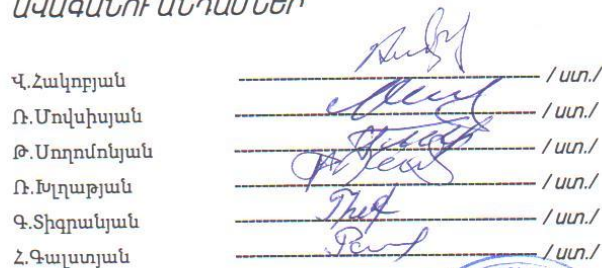 ԱՎԱԳԱՆՈՒ ԱՆԴԱՄՆԵՐ
Վ.Հակոբյան / ստ./
Ռ.Մովսիսյան / ստ./
Թ.Սողոմոնյան / ստ./
Ռ.Խլղաթյան / ստ./
Գ.Տիգրանյան / ստ./
Հ.Գալստյան / ստ./